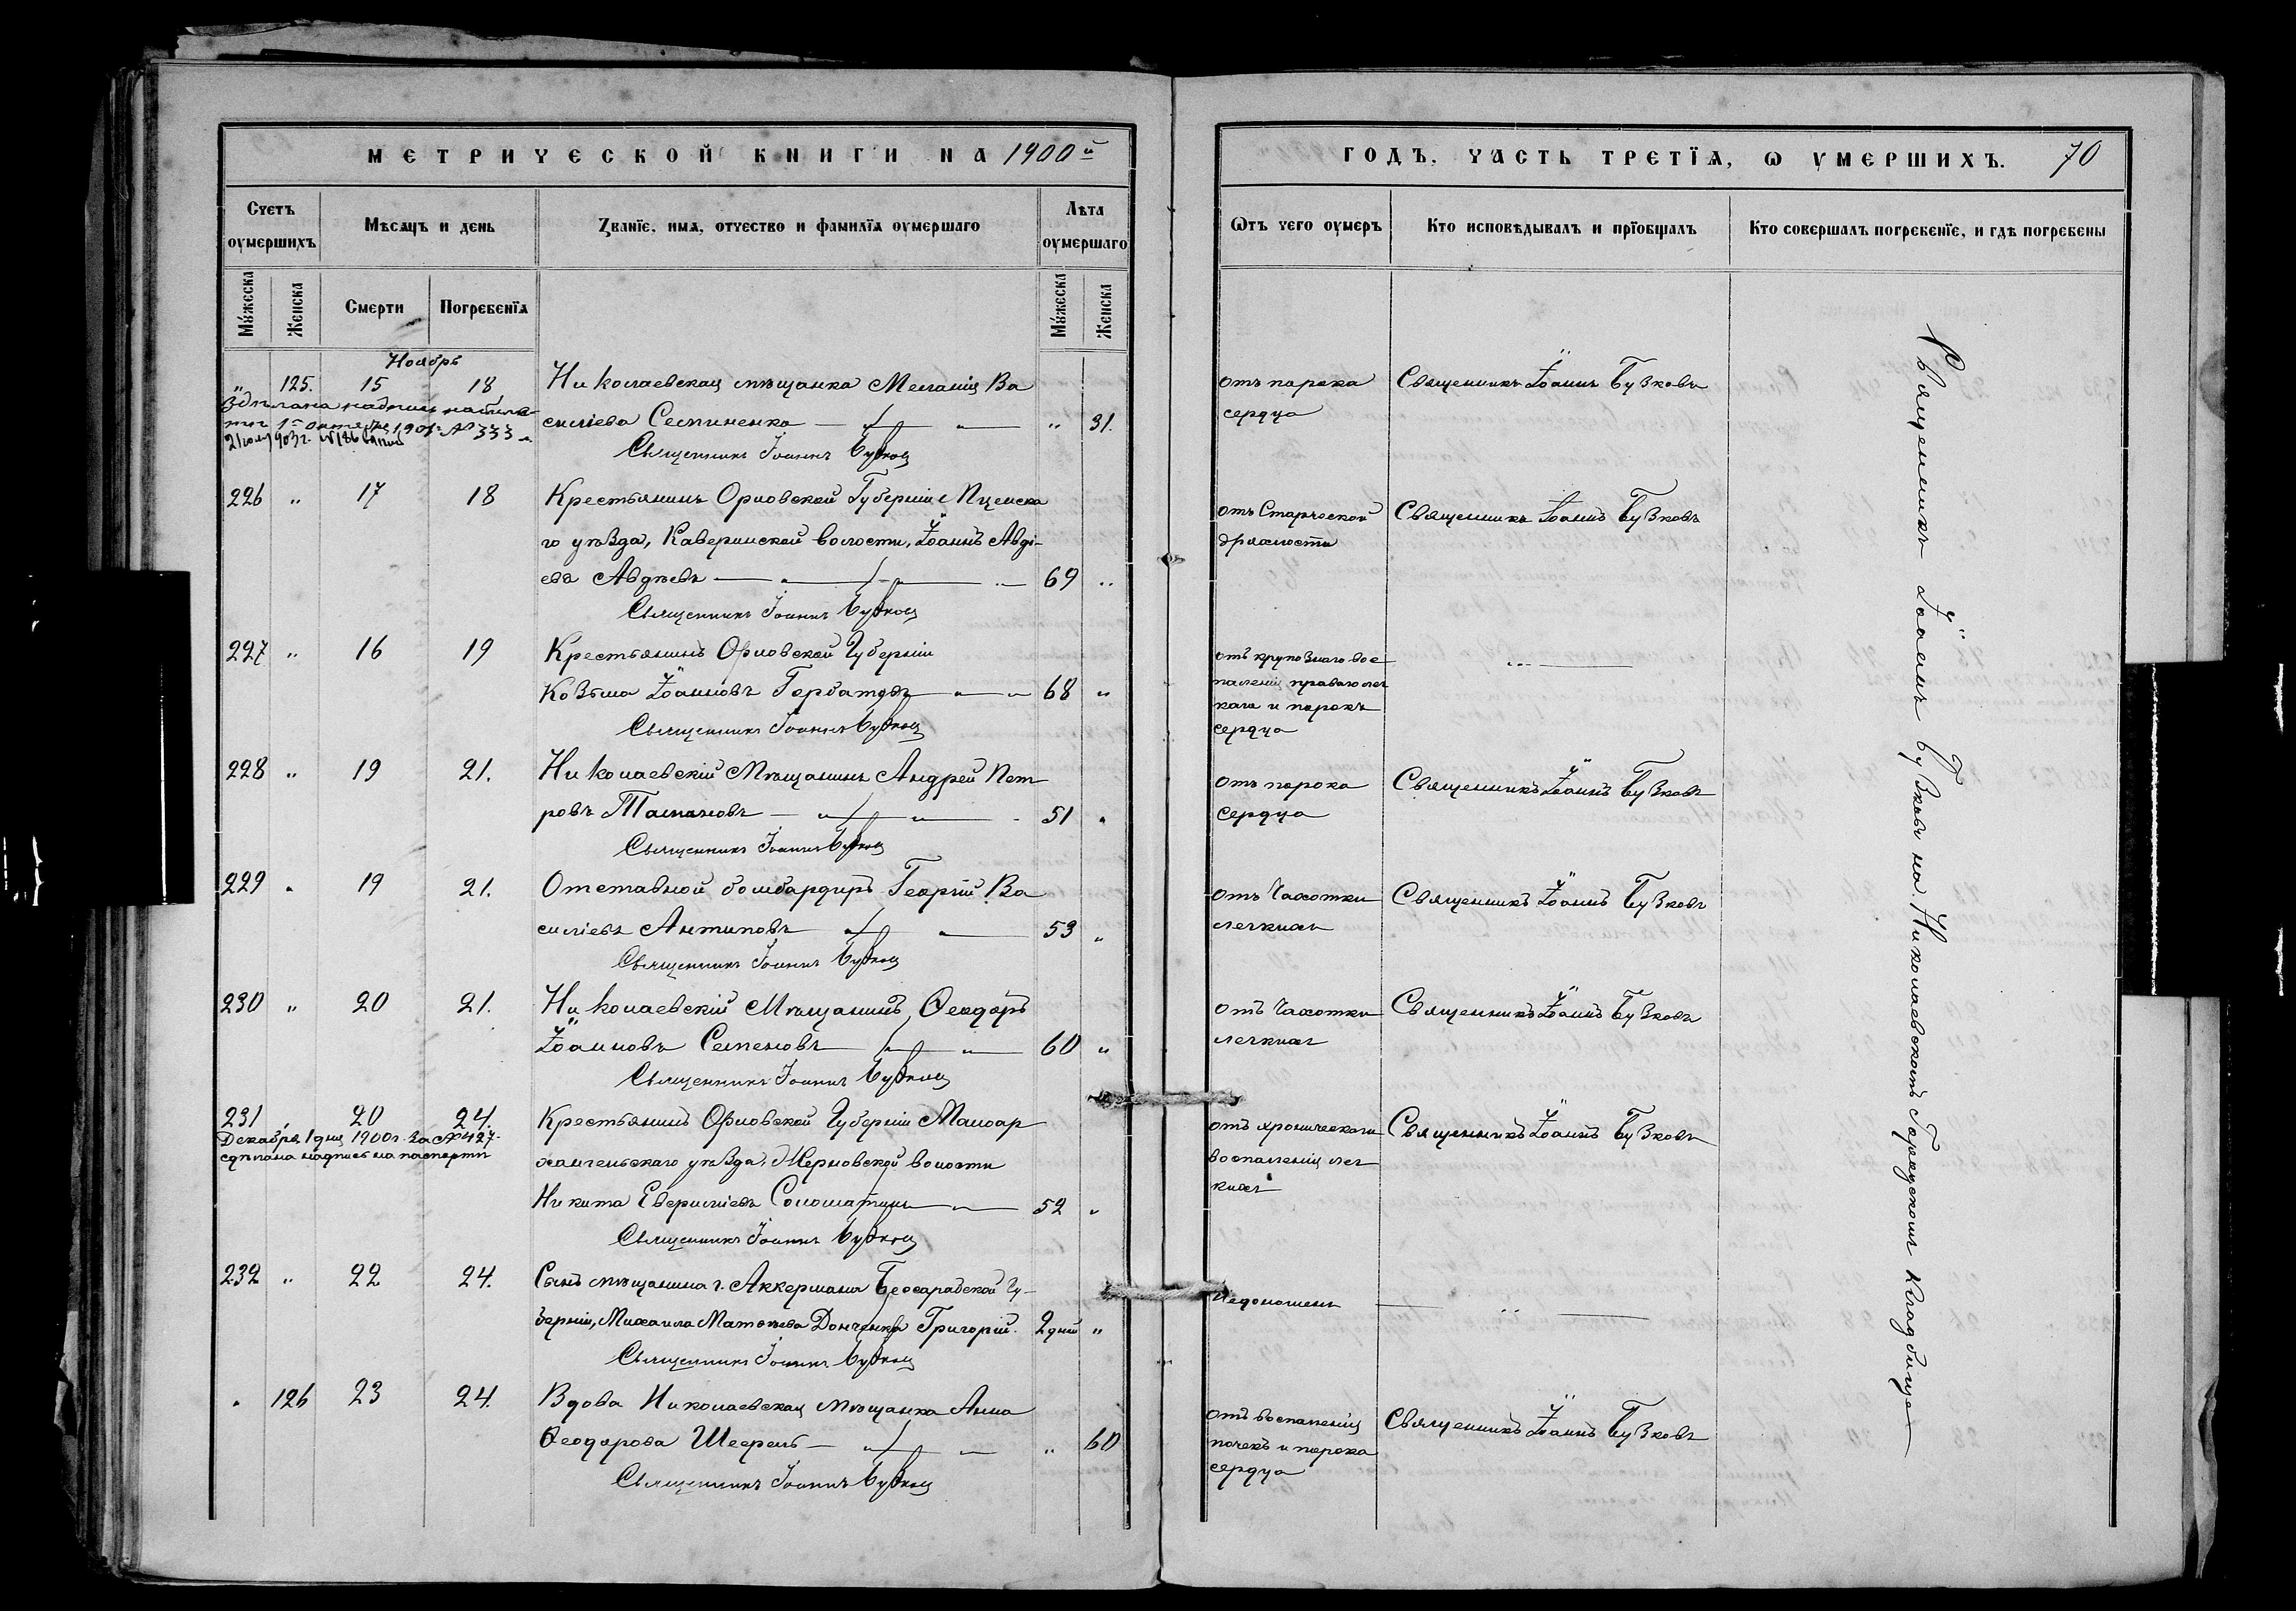 МЕТРИЧЕСКОЙ КНИГИ НА 1900й
Счетъ оумершихъ
Мѣсяцъ и день
Званїе, имя, отчество и фамилїя оумершаго
Лѣта оумершаго
Мужеска
Женска
Смерти
Погребенїя
Мужеска
Женска
Ноябрь
" 125. 15 18 Николаевская мѣщанка Меланія Ва
сильева Семиненко " 31.
Священникъ Іоаннъ Бузковъ
226 " 17 18 Крестьянинъ Орловской Губерніи Мценска
го уѣзда, Каверинской волости, Іоаннъ Авдѣ-
евъ Авдѣевъ 69 "
Священникъ Іоаннъ Бузковъ
227 " 16 19 Крестьянинъ Орловской Губерніи
Козьма Іоанновъ Горбатовъ 68 "
Священникъ Іоаннъ Бузковъ
228 " 19 21. Николаевскій Мѣщанинъ Андрей Пет
ровъ 51 "
Священникъ Іоаннъ Бузковъ
229 " 19 21. Отставной бомбардиръ Георгій Ва
сильевъ Антиповъ 53 "
Священникъ Іоаннъ Бузковъ
230 " 20 21. Николаевскій Мѣщанинъ Ѳеодоръ
Іоанновъ Семеновъ 60 "
Священникъ Іоаннъ Бузковъ
231 " 20 24. Крестьянинъ Орловской Губерніи Малоар
Декабря 1 дня 1900г. за № 427.
сдѣлана надпись на паспортѣ
хангельскаго уѣзда, волости
Никита Соломатинъ 52 "
Священникъ Іоаннъ Бузковъ
232 " 22 24. Сынъ мѣщанина г. Аккермана Бессарабской Гу-
берніи, Михаила Матвѣева Донченко Григорій. 2 дни "
Священникъ Іоаннъ Бузковъ
" 126 23 24. Вдова Николаевская мѣщанка Анна
Ѳеодорова " 60
Священникъ Іоаннъ Бузковъ
ГОДЪ, ЧАСТЬ ТРЕТЇЯ, Ѡ УМЕРШИХЪ. 70
Ѿтъ чего оумеръ
Кто исповѣдывалъ и прїобщалъ
Кто совершалъ погребенїе, и гдѣ погребены
отъ порока Священникъ Іоаннъ Бузковъ
сердца
отъ Старческой Священникъ Іоаннъ Бузковъ
дряхлости
отъ крупознаго вос
паленія праваго лег
каго и порокъ
сердца
отъ порока Священникъ Іоаннъ Бузковъ
сердца
отъ Чахотки Священникъ Іоаннъ Бузковъ
легкихъ
отъ Чахотки Священникъ Іоаннъ Бузковъ
легкихъ
отъ хроническаго Священникъ Іоаннъ Бузковъ
воспаленія лег
кихъ
Недоношенъ
отъ воспаленія Священникъ Іоаннъ Бузковъ
почекъ и порока
сердца
Священникъ Іоаннъ Бузковъ на Николаевскомъ Городскомъ Кладбище